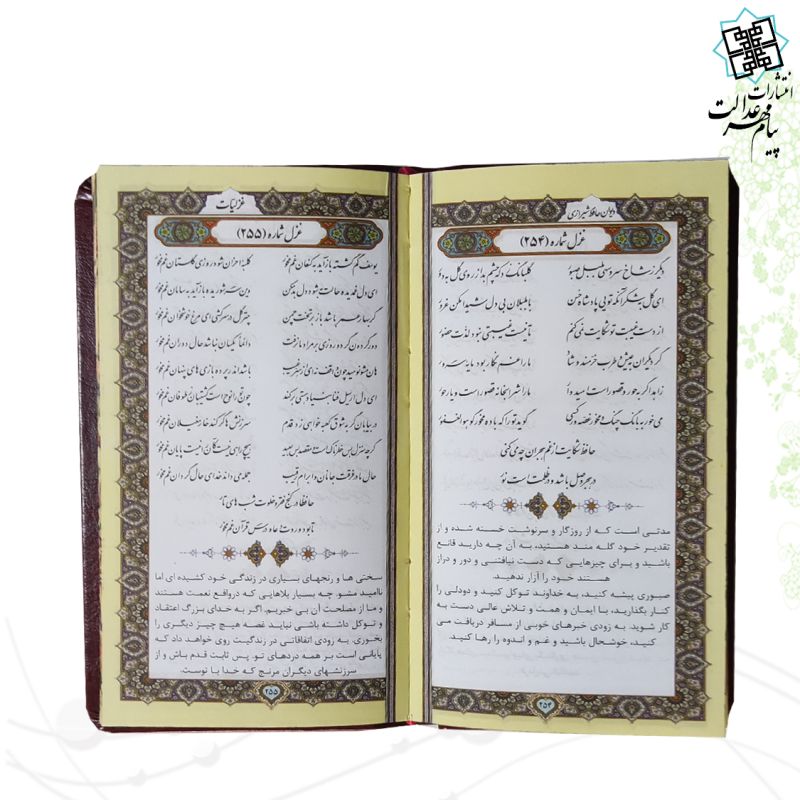 انتشارات
پیام مهر عدالت
دیوان حافظ شیرازی
غزل شماره (۲۵۴)
دیگر ز شاخ سرو سهی بلبل صبور
گلبانگ زد که چشم بد از روی گل به دور
ای گل بشکر آنکه تویی پادشاه حسن
با بلبلان بی دل شیدا مکن غرور
از دست غیبت تو شکایت نمی کنم
تا نیست غیبتی نبود لذت حضور
گر دیگران به عیش و طرب خرمند و شاد
ما را غم نگار بود مایه سرور
زاهد اگر به حور و قصور است امیدوار
ما را شرابخانه قصور است و یار حور
می خور به بانگ چنگ و مخور غصه ور کسی
گوید تو را که باده مخور گو هو الغفور
حافظ شکایت از غم هجران چه می کنی
در هجر وصل باشد و در ظلمت است نور
مدتی است که از روزگار و سرنوشت خسته شده و از
تقدیر خود گله مند هستید، به آن چه دارید قانع
باشید و برای چیزهایی که دست نیافتنی و دور و دراز
هستند خود را آزار ندهید.
صبوری پیشه کنید، به خداوند توکل کنید و دودلی را
کنار بگذارید، با ایمان و همت و تلاش عالی دست به
کار شوید. به زودی خبرهای خوبی از مسافر دریافت می
کنید، خوشحال باشید و غم و اندوه را رها کنید.
۲۵۴
غزلیات
غزل شماره (۲۵۵)
یوسف گم گشته باز آید به کنعان غم مخور
کلبه احزان شود روزی گلستان غم مخور
ای دل غمدیده حالت به شود دل بد مکن
وین سر شوریده باز آید به سامان غم مخور
گر بهار عمر باشد باز بر تخت چمن
چتر گل در سر کشی ای مرغ خوشخوان غم مخور
دور گردون گر دو روزی بر مراد ما نرفت
دائما یکسان نباشد حال دوران غم مخور
هان مشو نومید چون واقف نه ای از سر غیب
باشد اندر پرده بازی های پنهان غم مخور
ای دل ار سیل فنا بنیاد هستی بر کند
چون تو را نوح است کشتیبان ز طوفان غم مخور
در بیابان گر به شوق کعبه خواهی زد قدم
سرزنش ها گر کند خار مغیلان غم مخور
گر چه منزل بس خطرناک است و مقصد بس بعید
هیچ راهی نیست کان را نیست پایان غم مخور
حال ما و فرقت جانان و ابرام رقیب
جمله می داند خدای حال گردان غم مخور
حافظا در کنج فقر و خلوت شب های تار
تا بود وردت دعا و درس قرآن غم مخور
سختی ها و رنجهای بسیاری در زندگی خود کشیده ای اما
ناامید مشو. چه بسیار بلاهایی که درواقع نعمت هستند
و ما از مصلحت آن بی خبریم. اگر به خدای بزرگ اعتقاد
و توکل داشته باشی نباید غصه هیچ چیز دیگری را
بخوری. به زودی اتفاقاتی در زندگیت روی خواهد داد که
پایانی است بر همه دردهای تو. پس ثابت قدم باش و از
سرزنشهای دیگران مرنج که خدا با توست.
۲۵۵